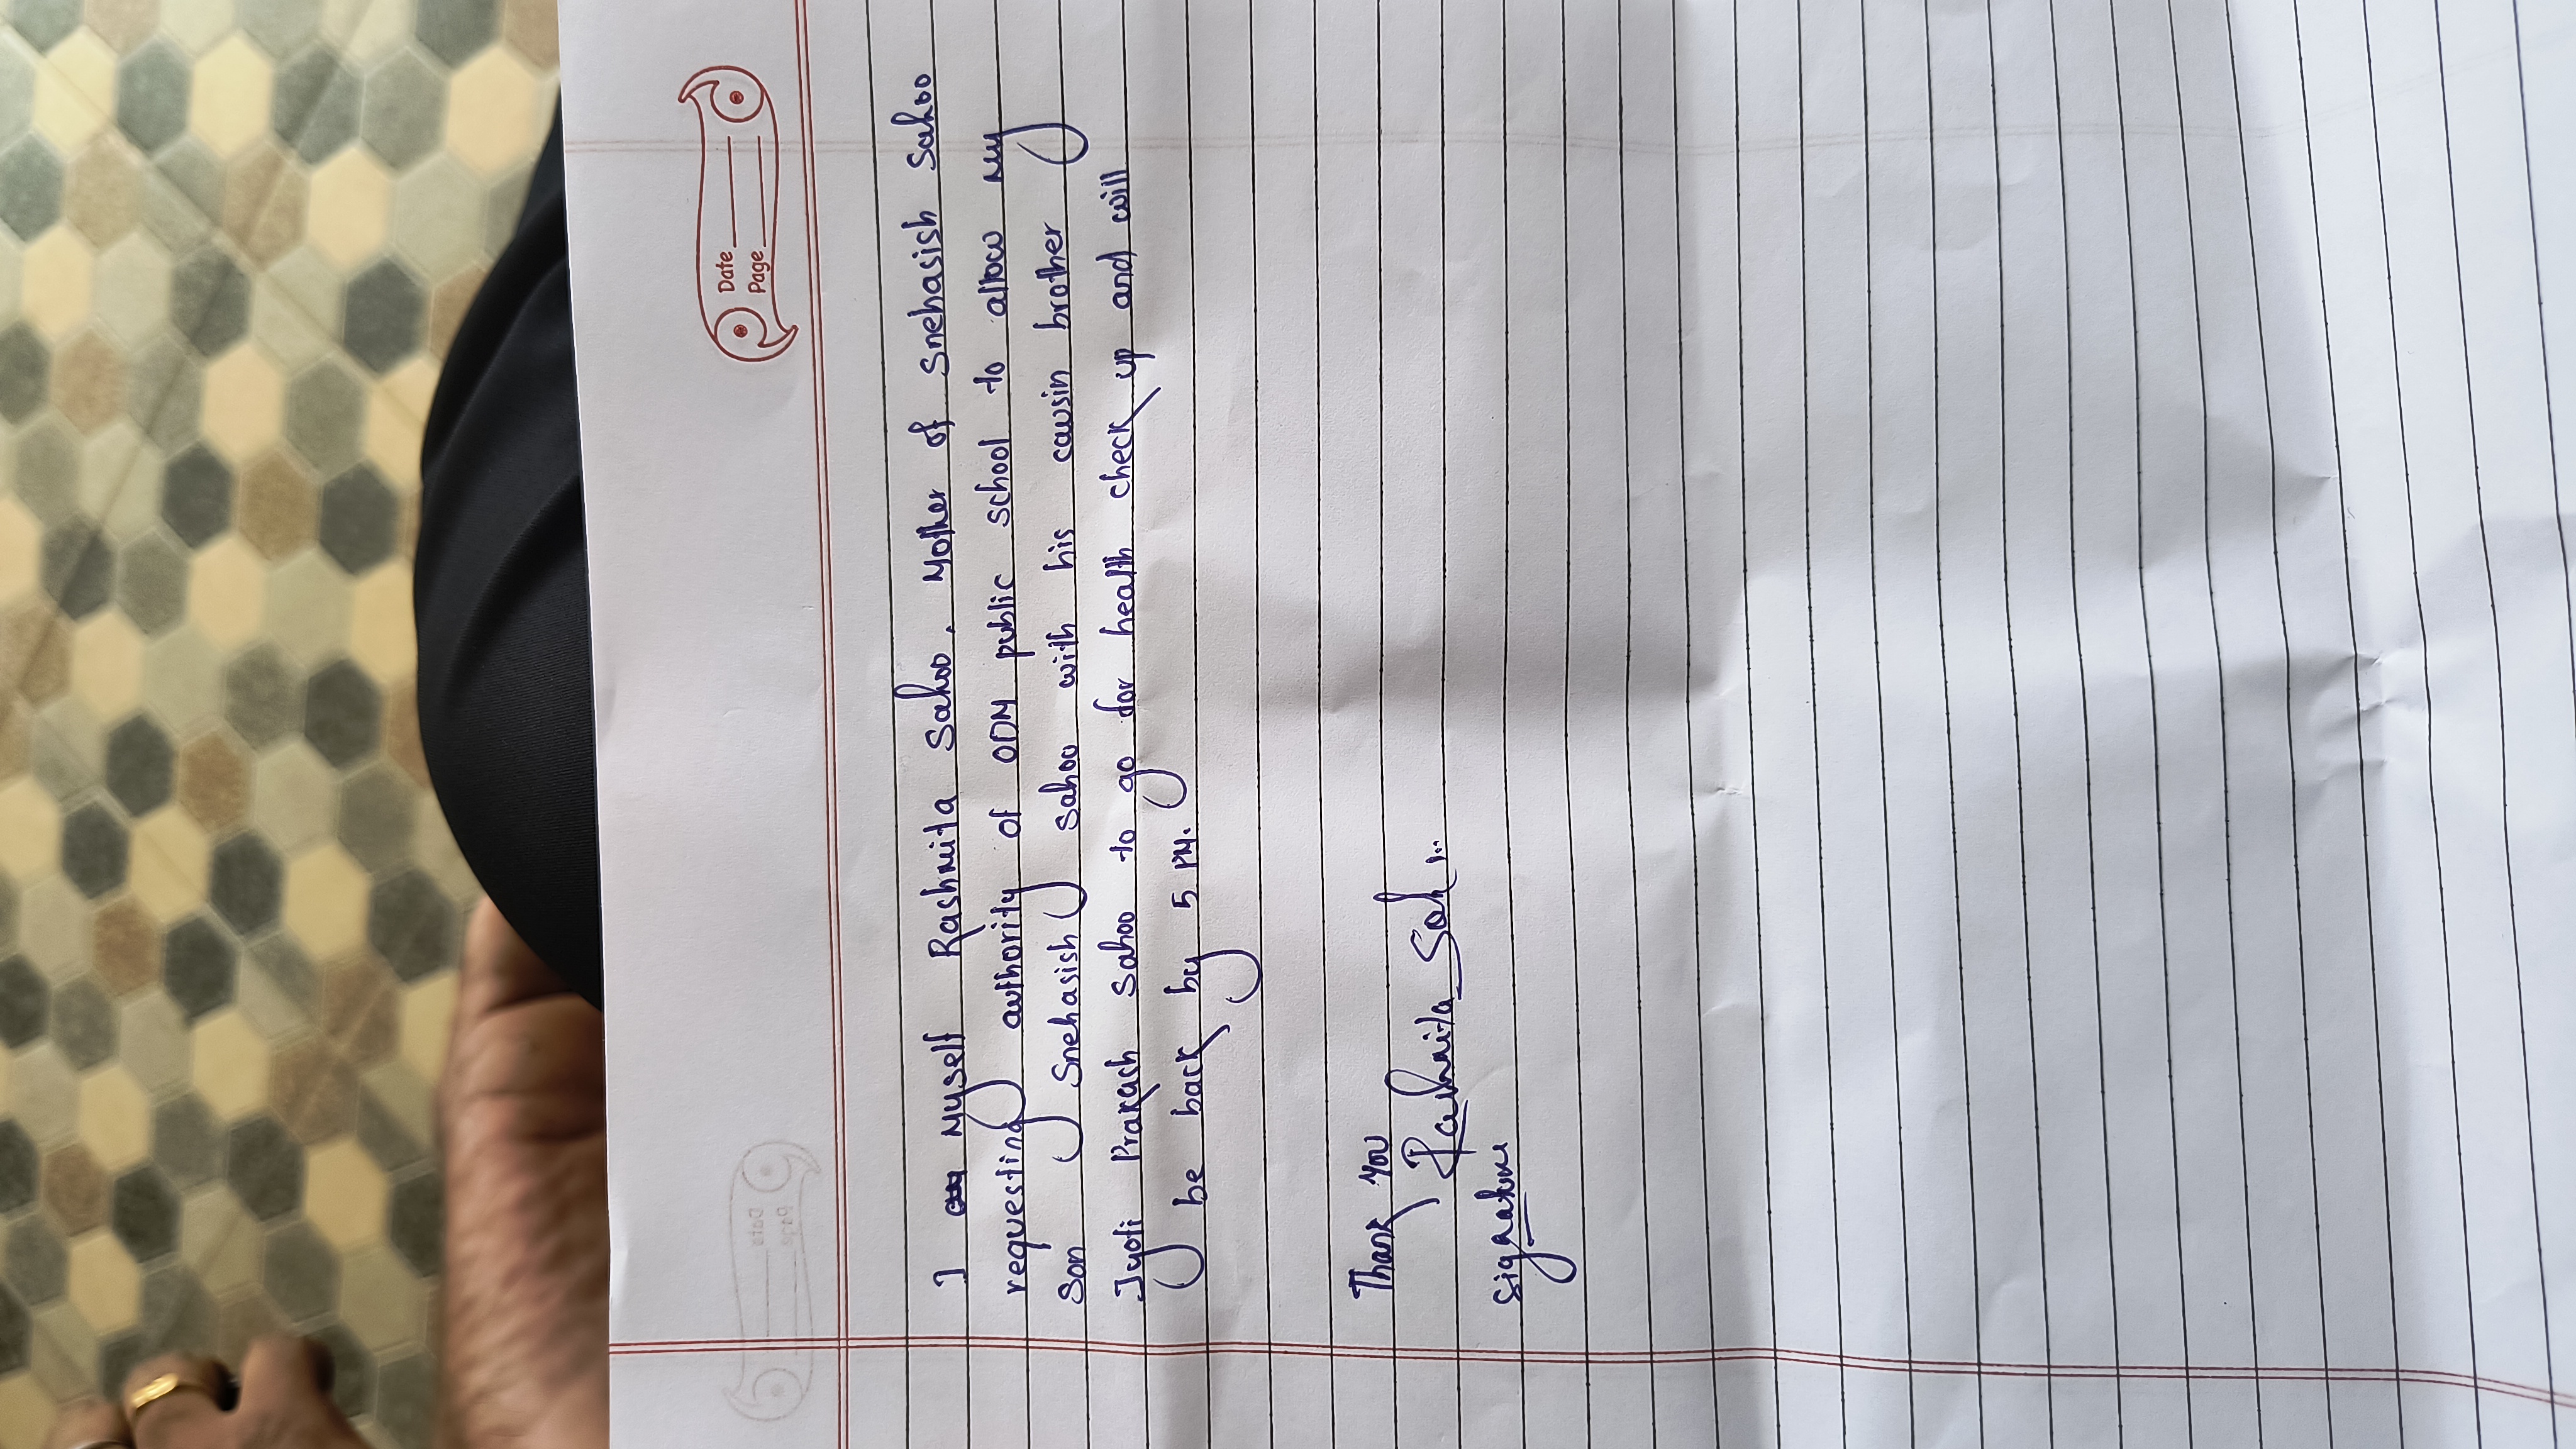 Date
Page
I myself Rashmita Sahoo, Mother of Snehasish Sahoo
requesting authority of ODM public school to allow my
Son Snehasish Sahoo with his causin brother
Jyoti Prakash Sahoo to go for health check up and will
be back by 5 PM.
Thank you
Rashmita Sah...
Signature